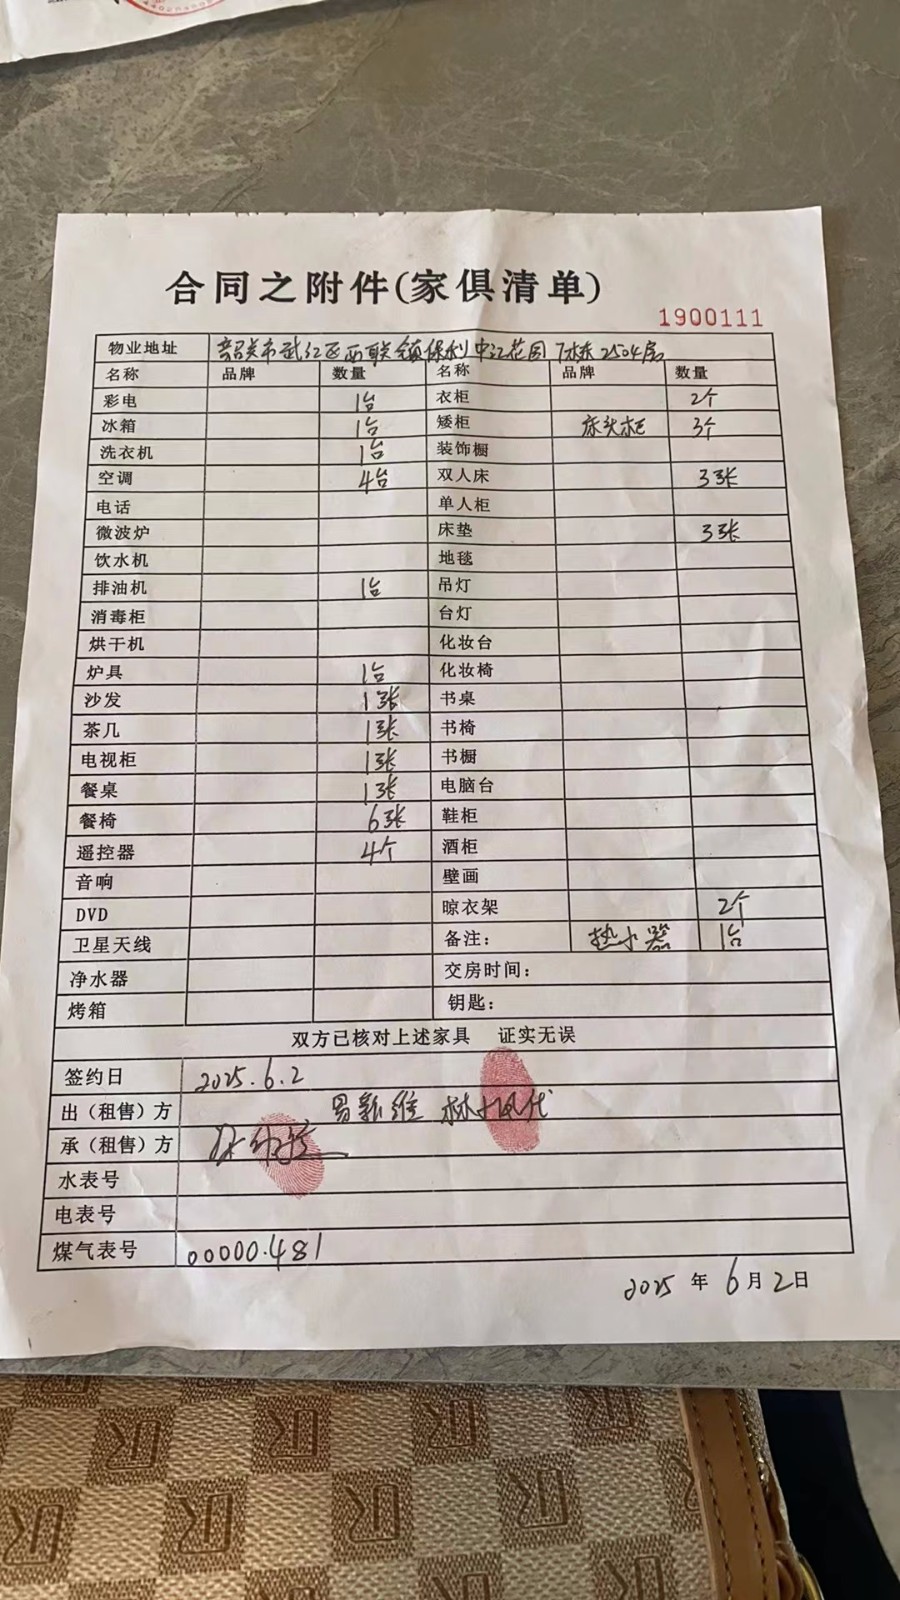 合同之附件(家俱清单)
1900111
物业地址 韶关市武江区西联镇保利中江花园7栋2504房
名称 品牌 数量 名称 品牌 数量
彩电 1台 衣柜 2个
冰箱 1台 矮柜 床头柜 3个
洗衣机 1台 装饰橱
空调 4台 双人床 3张
电话 单人柜
微波炉 床垫 3张
饮水机 地毯
排油机 1台 吊灯
消毒柜 台灯
烘干机 化妆台
炉具 1台 化妆椅
沙发 1张 书桌
茶几 1张 书椅
电视柜 1张 书橱
餐桌 1张 电脑台
餐椅 6张 鞋柜
遥控器 4个 酒柜
音响 壁画
DVD 晾衣架 2个
卫星天线 备注: 热水器 1台
净水器 交房时间:
烤箱 钥匙:
双方已核对上述家具 证实无误
签约日 2025.6.2
出（租售）方 易新维
承（租售）方
水表号
电表号
煤气表号 00000.481
2025年6月2日